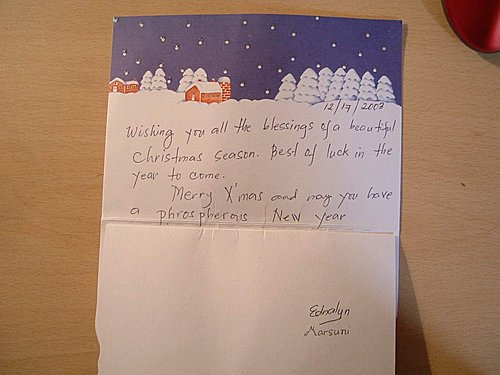 12/17/2008
Wishing you all the blessings of a beautiful
Christmas season. Best of luck in the
year to come.
Merry X'mas and may you have
a phrospherous New year
Ednalyn
Marsuni